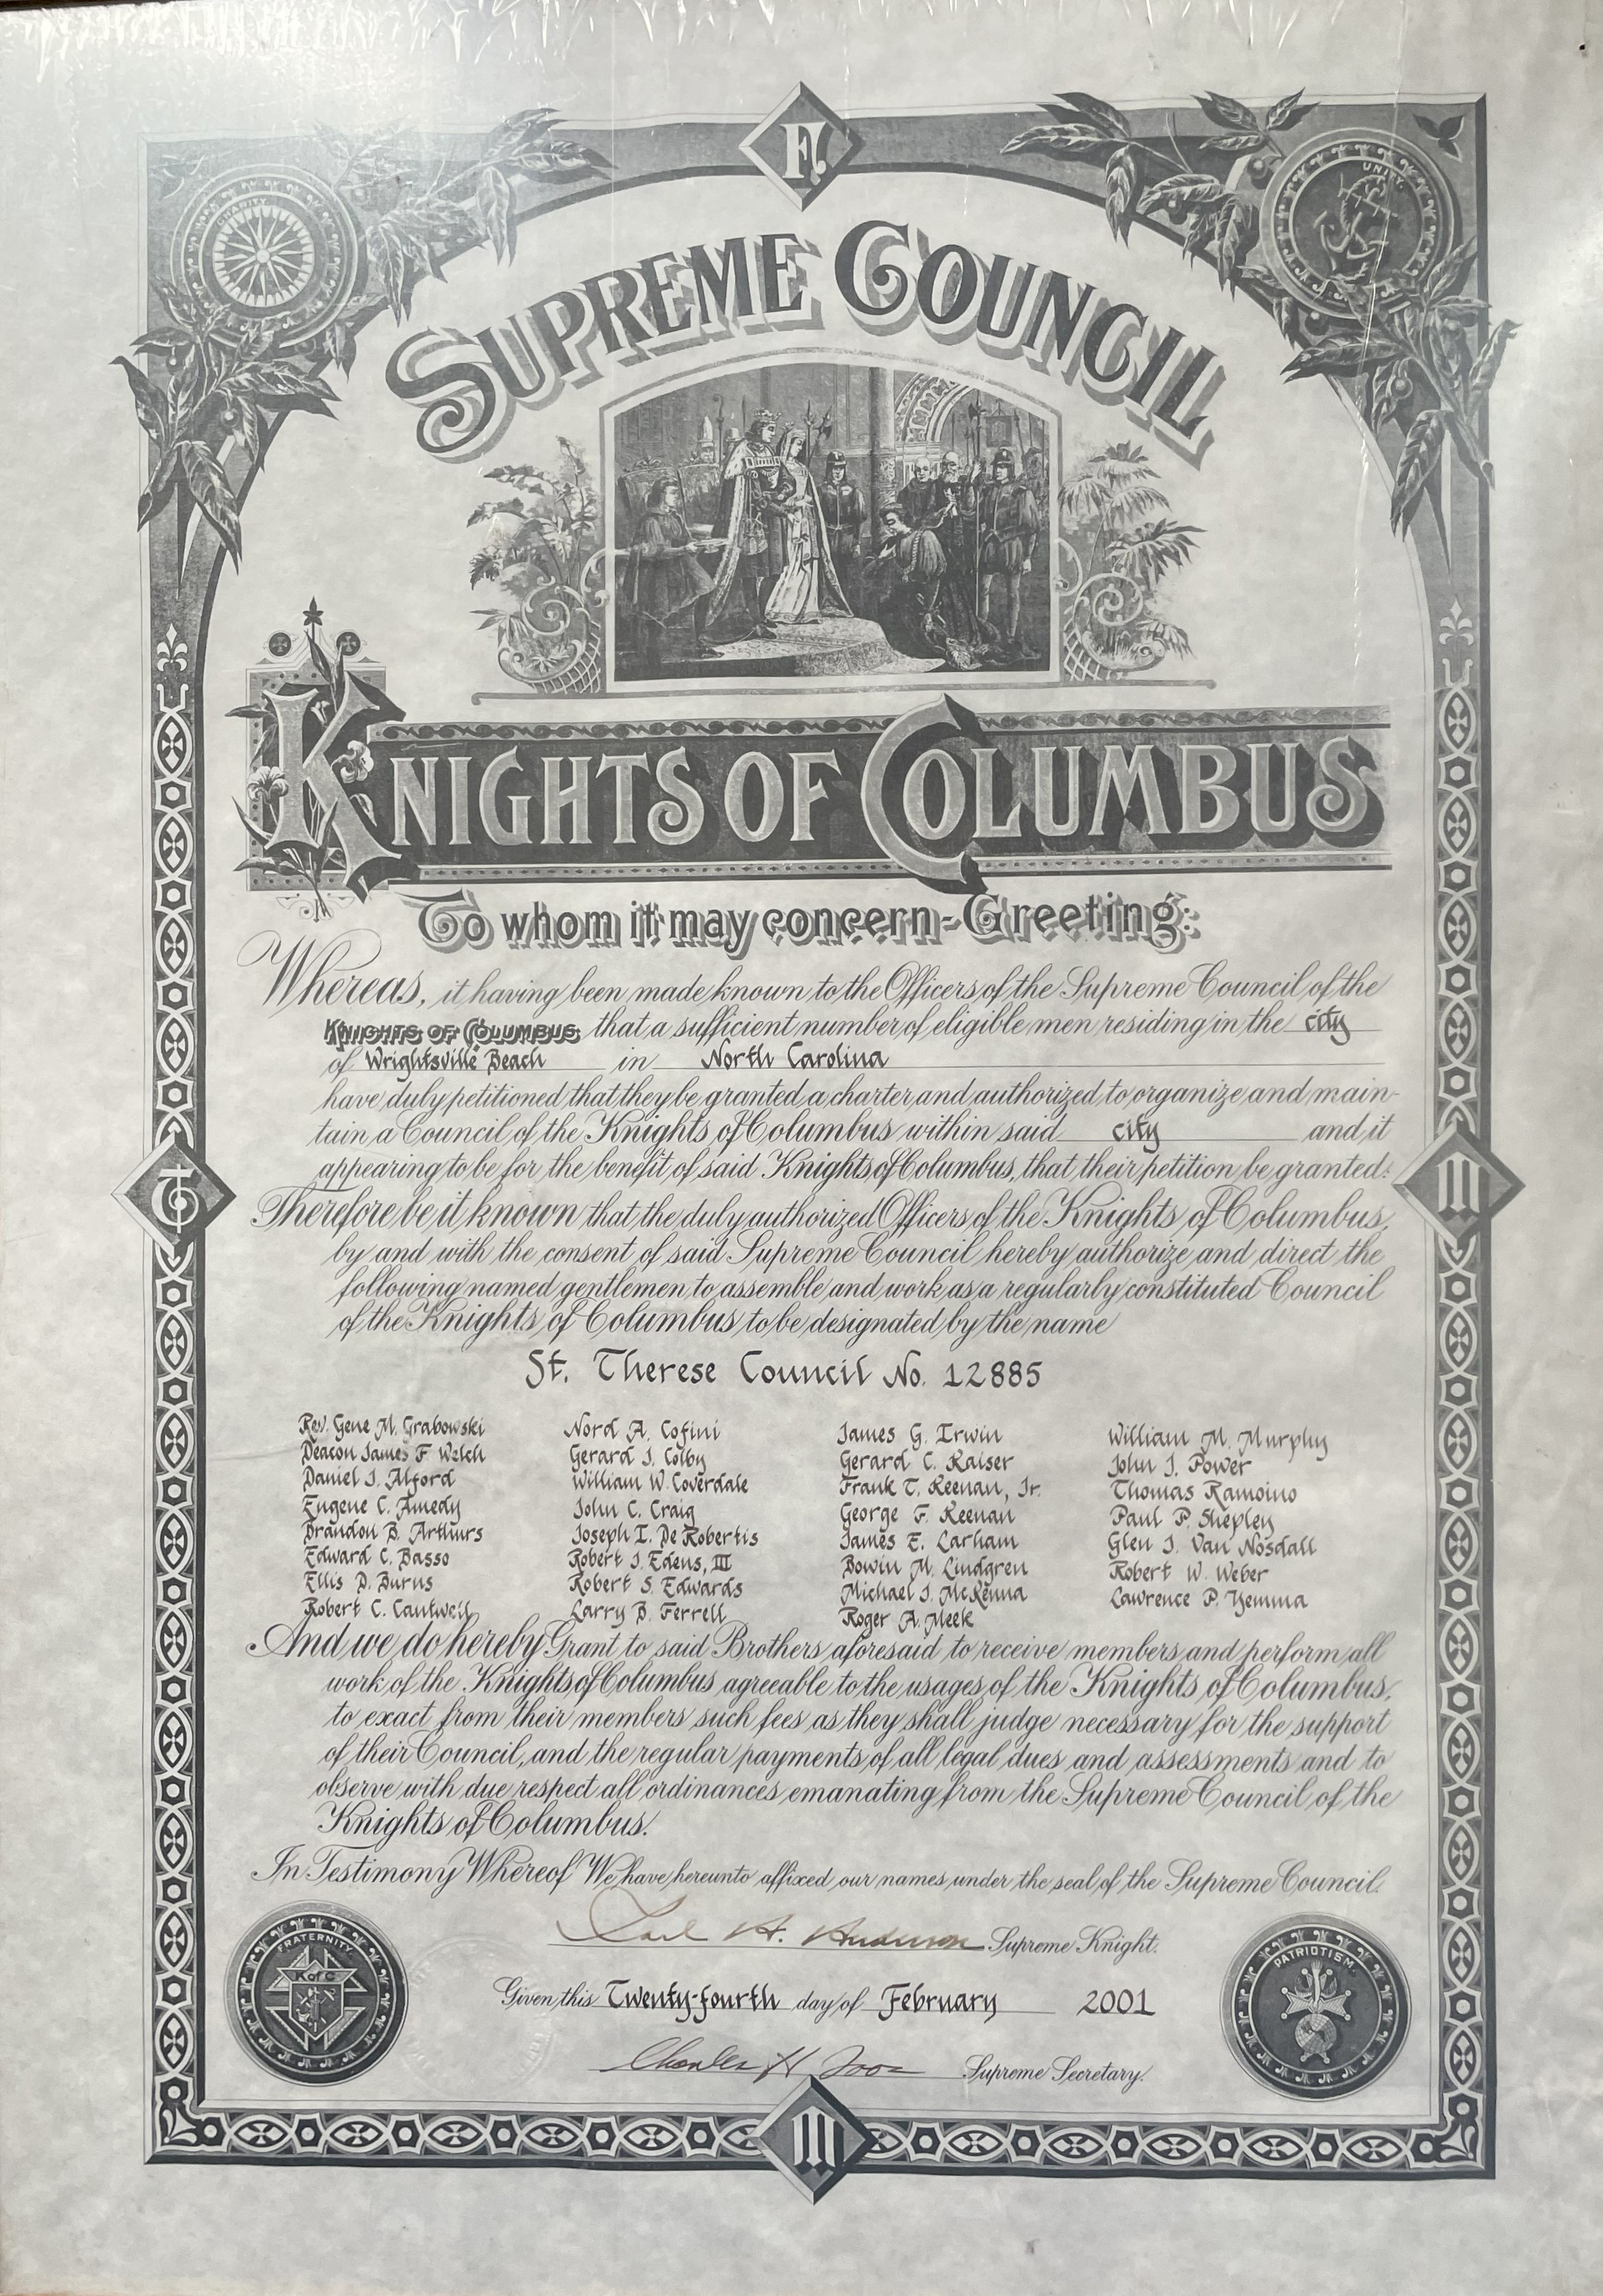 F.
CHARITY
UNITY
SUPREME COUNCIL
KNIGHTS OF COLUMBUS
To whom it may concern-Greeting:
Whereas, it having been made known to the Officers of the Supreme Council of the
KNIGHTS OF COLUMBUS that a sufficient number of eligible men residing in the city
of Wrightsville Beach in North Carolina
have duly petitioned that they be granted a charter and authorized to organize and main-
tain a Council of the Knights of Columbus within said city and it
appearing to be for the benefit of said Knights of Columbus, that their petition be granted:
Therefore be it known that the duly authorized Officers of the Knights of Columbus,
by and with the consent of said Supreme Council hereby authorize and direct the
following named gentlemen to assemble and work as a regularly constituted Council
of the Knights of Columbus to be designated by the name
St. Therese Council No. 12885
Rev. Gene M. Grabowski
Deacon James F Welch
Daniel J. Alford
Eugene C. Amedy
Brandon B. Arthurs
Edward C. Basso
Ellis D. Burns
Robert C. Cantwell
Nord A. Cofini
Gerard J. Colby
William W. Coverdale
John C. Craig
Joseph I. De Robertis
Robert J. Edens, III
Robert S. Edwards
Larry B. Ferrell
James G. Irwin
Gerard C. Kaiser
Frank T. Keenan, Jr.
George F. Keenan
James E. Larham
Bowin M. Lindgren
Michael J. McKenna
Roger A. Meek
William M. Murphy
John J. Power
Thomas Ramoino
Paul P. Shepley
Glen J. Van Nosdall
Robert W. Weber
Lawrence P. Yemma
And we do hereby Grant to said Brothers aforesaid to receive members and perform all
work of the Knights of Columbus agreeable to the usages of the Knights of Columbus,
to exact from their members such fees as they shall judge necessary for the support
of their Council, and the regular payments of all legal dues and assessments and to
observe with due respect all ordinances emanating from the Supreme Council of the
Knights of Columbus.
In Testimony Whereof We have hereunto affixed our names under the seal of the Supreme Council.
Carl A. Anderson Supreme Knight.
FRATERNITY
K of C
PATRIOTISM
Given this Twenty-fourth day of February 2001
Charles H. Foos Supreme Secretary.